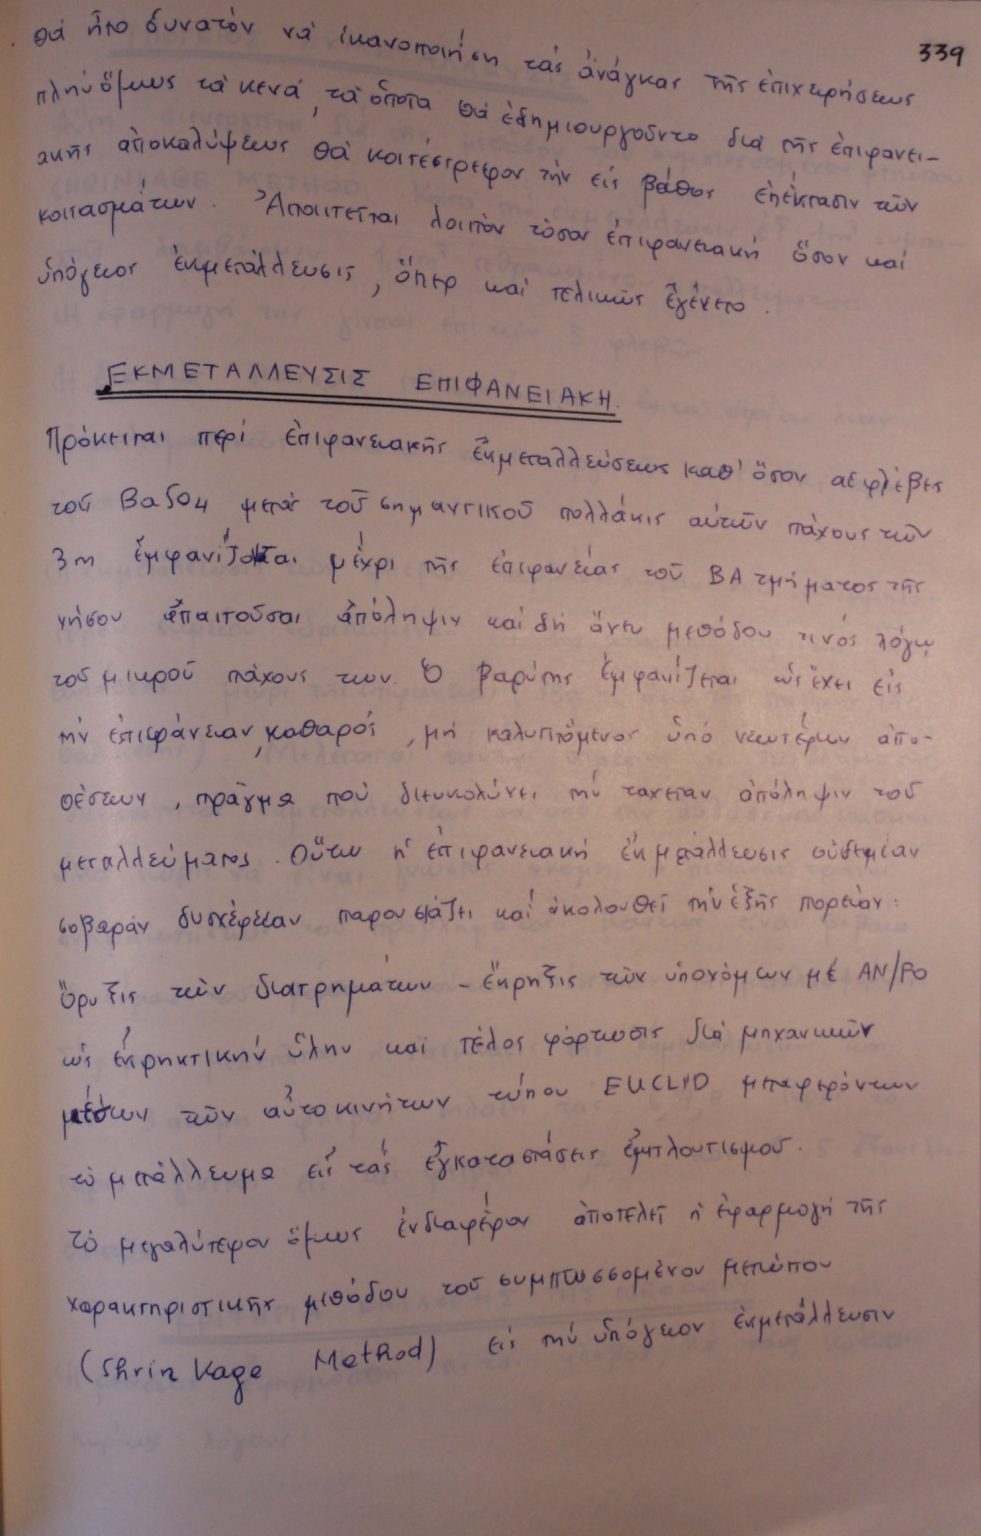 339
θά ἦτο δυνατόν νά ἱκανοποιήσῃ τάς ἀνάγκας τῆς ἐπιχειρήσεως
πλήν ὅμως τά κενά, τά ὁποῖα θά ἐδημιουργοῦντο διά τῆς ἐπιφανει-
ακῆς ἀποκαλύψεως θά κατέστρεφον τήν εἰς βάθος ἐπέκτασιν τῶν
κοιτασμάτων. Ἀπαιτεῖται λοιπόν τόσον ἐπιφανειακή ὅσον καί
ὑπόγειος ἐκμετάλλευσις, ὅπερ καί τελικῶς ἐγένετο.
ΕΚΜΕΤΑΛΛΕΥΣΙΣ ΕΠΙΦΑΝΕΙΑΚΗ.
Πρόκειται περί ἐπιφανειακῆς ἐκμεταλλεύσεως καθ' ὅσον αἱ φλέβες
τοῦ BaSO4 μετά τοῦ σημαντικοῦ πολλάκις αὐτῶν πάχους τῶν
3m ἐμφανίζονται μέχρι τῆς ἐπιφανείας τοῦ ΒΑ τμήματος τῆς
νήσου ἀπαιτοῦσαι ἀπόληψιν καί δή ἄνευ μεθόδου τινός λόγῳ
τοῦ μικροῦ πάχους των. Ὁ βαρύτης ἐμφανίζεται ὡς ἔχει εἰς
τήν ἐπιφάνειαν, καθαρός, μή καλυπτόμενος ὑπό νεωτέρων ἀπο-
θέσεων, πρᾶγμα πού διευκολύνει τήν ταχεῖαν ἀπόληψιν τοῦ
μεταλλεύματος. Οὕτω ἡ ἐπιφανειακή ἐκμετάλλευσις οὐδεμίαν
σοβαράν δυσχέρειαν παρουσιάζει καί ἀκολουθεῖ τήν ἑξῆς πορείαν:
Ὄρυξις τῶν διατρημάτων - ἔκρηξις τῶν ὑπονόμων μέ AN/FO
ὡς ἐκρηκτικήν ὕλην καί τέλος φόρτωσις διά μηχανικῶν
μέσων τῶν αὐτοκινήτων τύπου EUCLID μεταφερόντων
τό μετάλλευμα εἰς τάς ἐγκαταστάσεις ἐμπλουτισμοῦ.
Τό μεγαλύτερον ὅμως ἐνδιαφέρον ἀποτελεῖ ἡ ἐφαρμογή τῆς
χαρακτηριστικῆς μεθόδου τοῦ συμπτυσσομένου μετώπου
(Shrinkage Method) εἰς τήν ὑπόγειον ἐκμετάλλευσιν